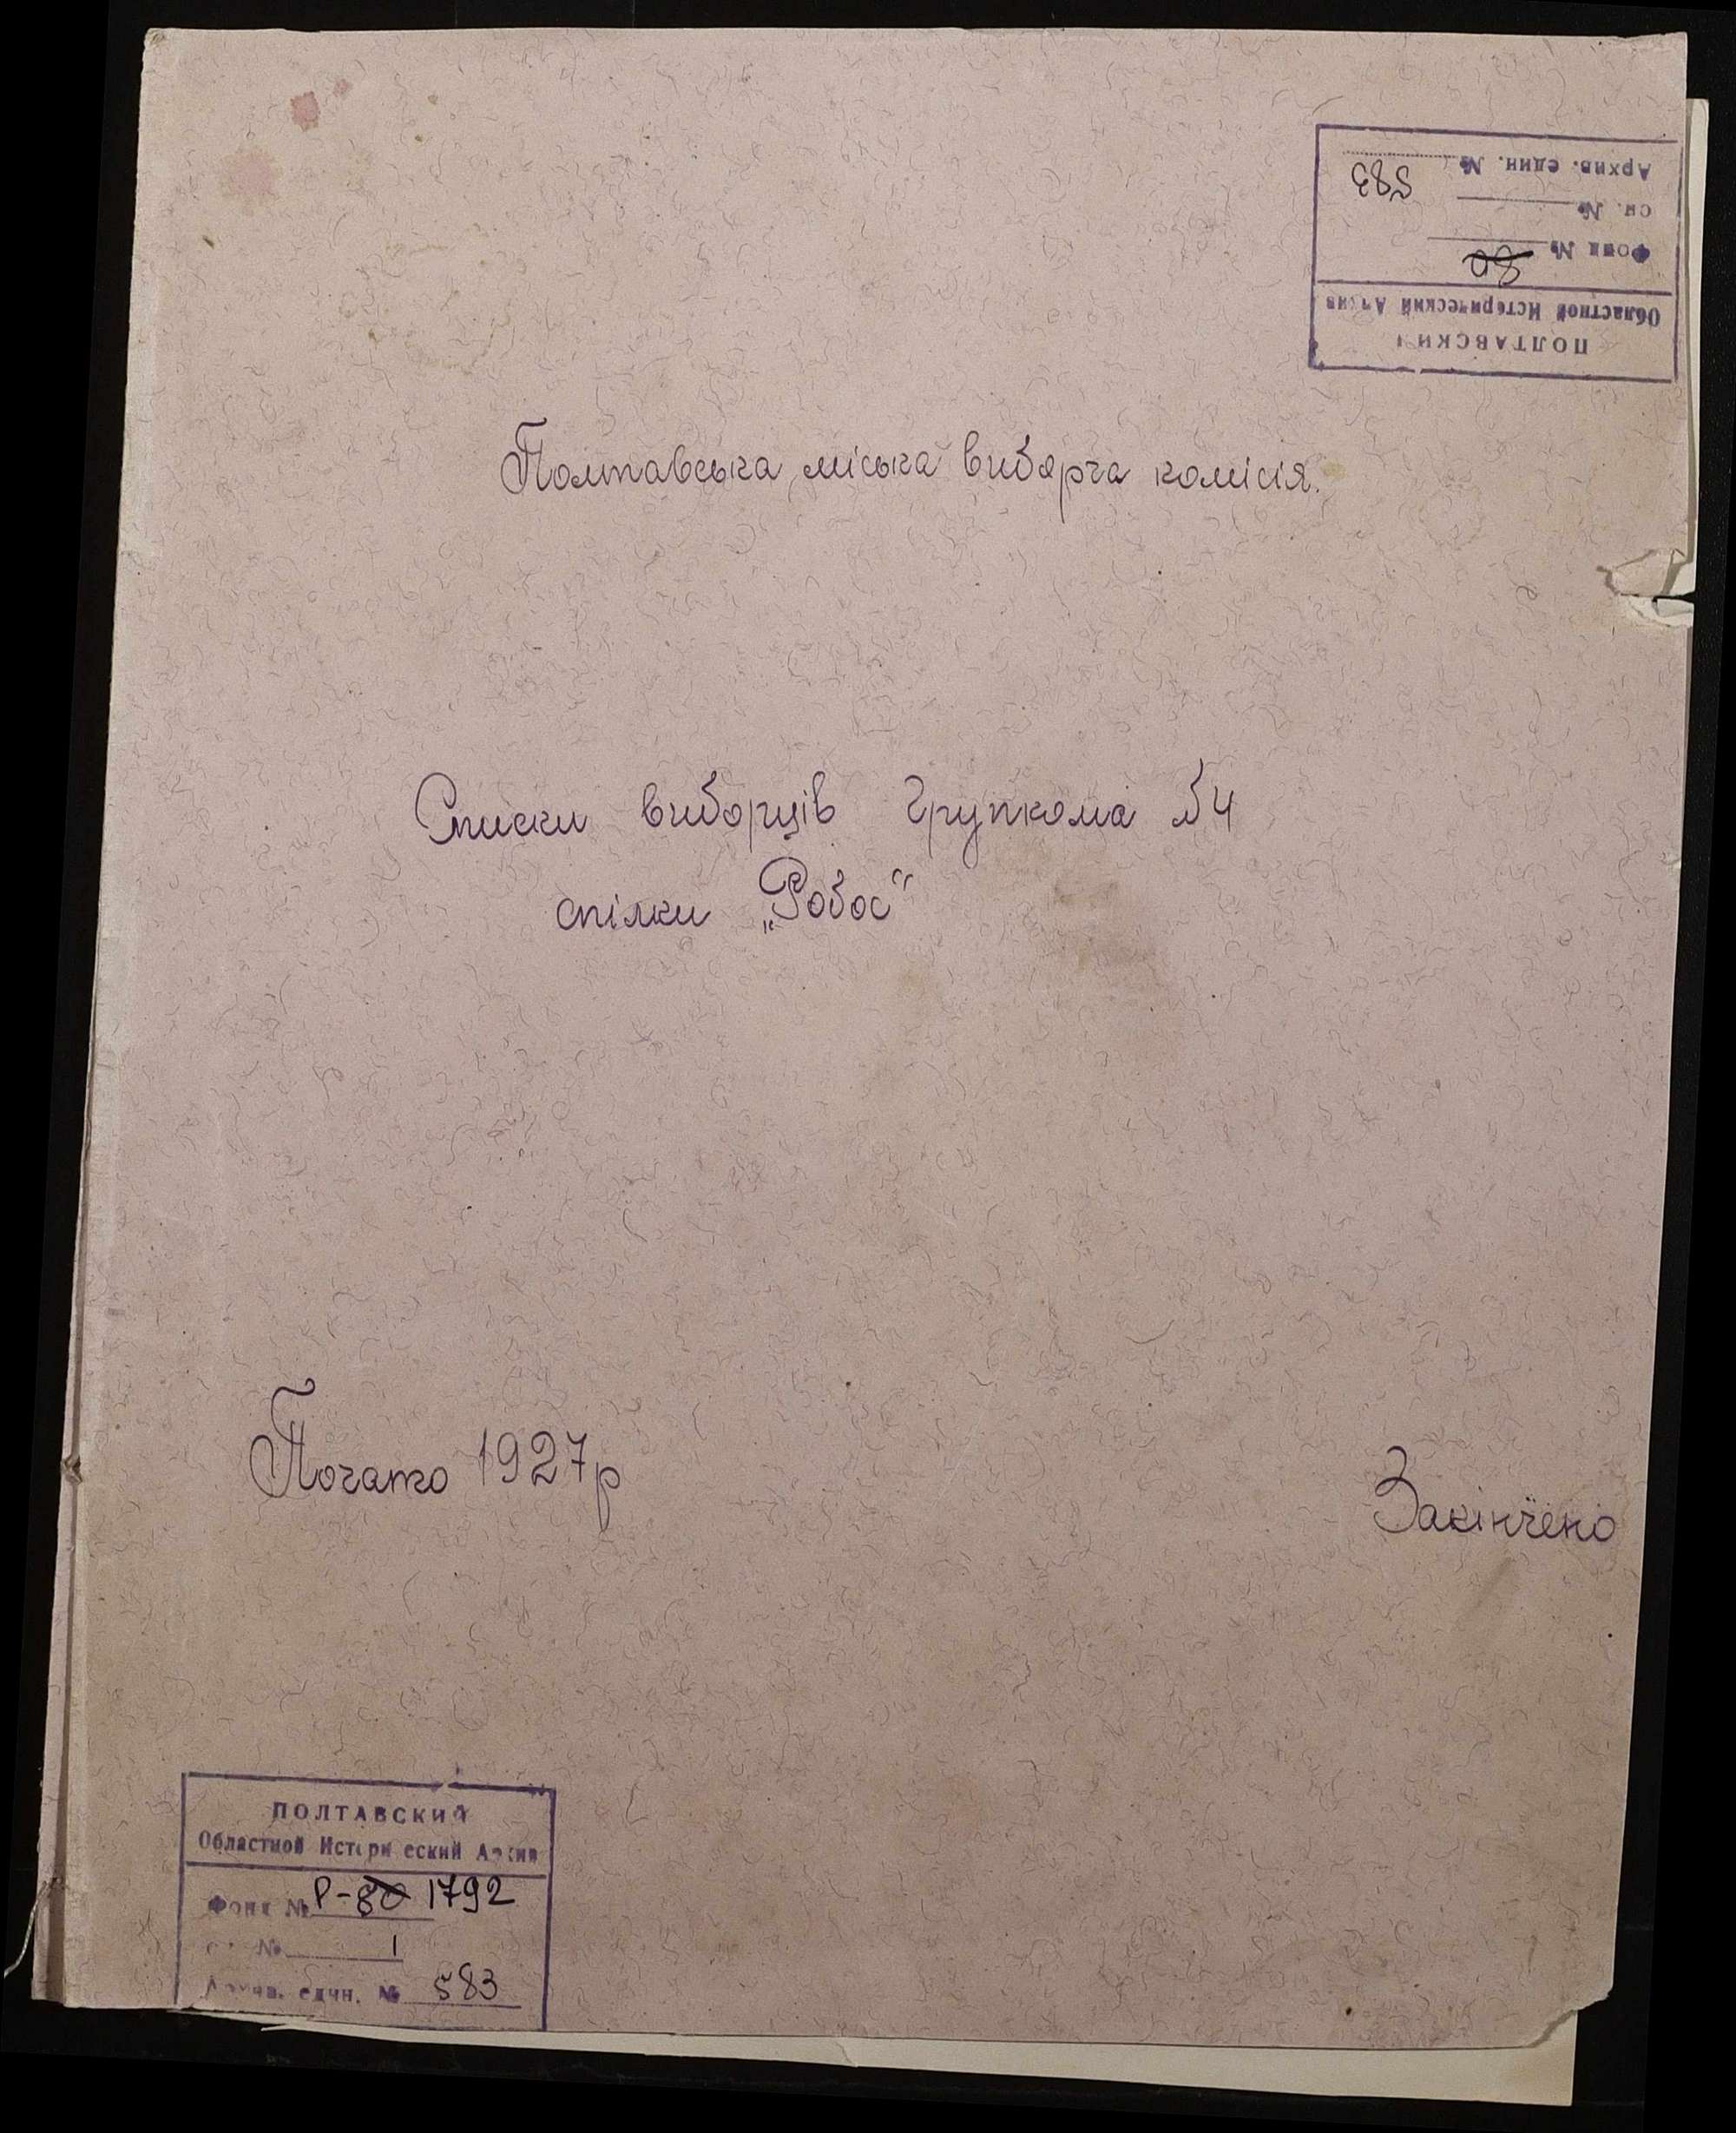 ПОЛТАВСКИЙ
Областной Исторический Архив
Фонд № 80
оп. №
Архив. един. № 583
Полтавська міська виборча комісія.
Списки виборців Групкома №4
спілки „Робос"
Почато 1927р
Закінчено
ПОЛТАВСКИЙ
Областной Исторический Архив
Фонд № Р-80 1792
оп. № 1
Архив. един. № 583